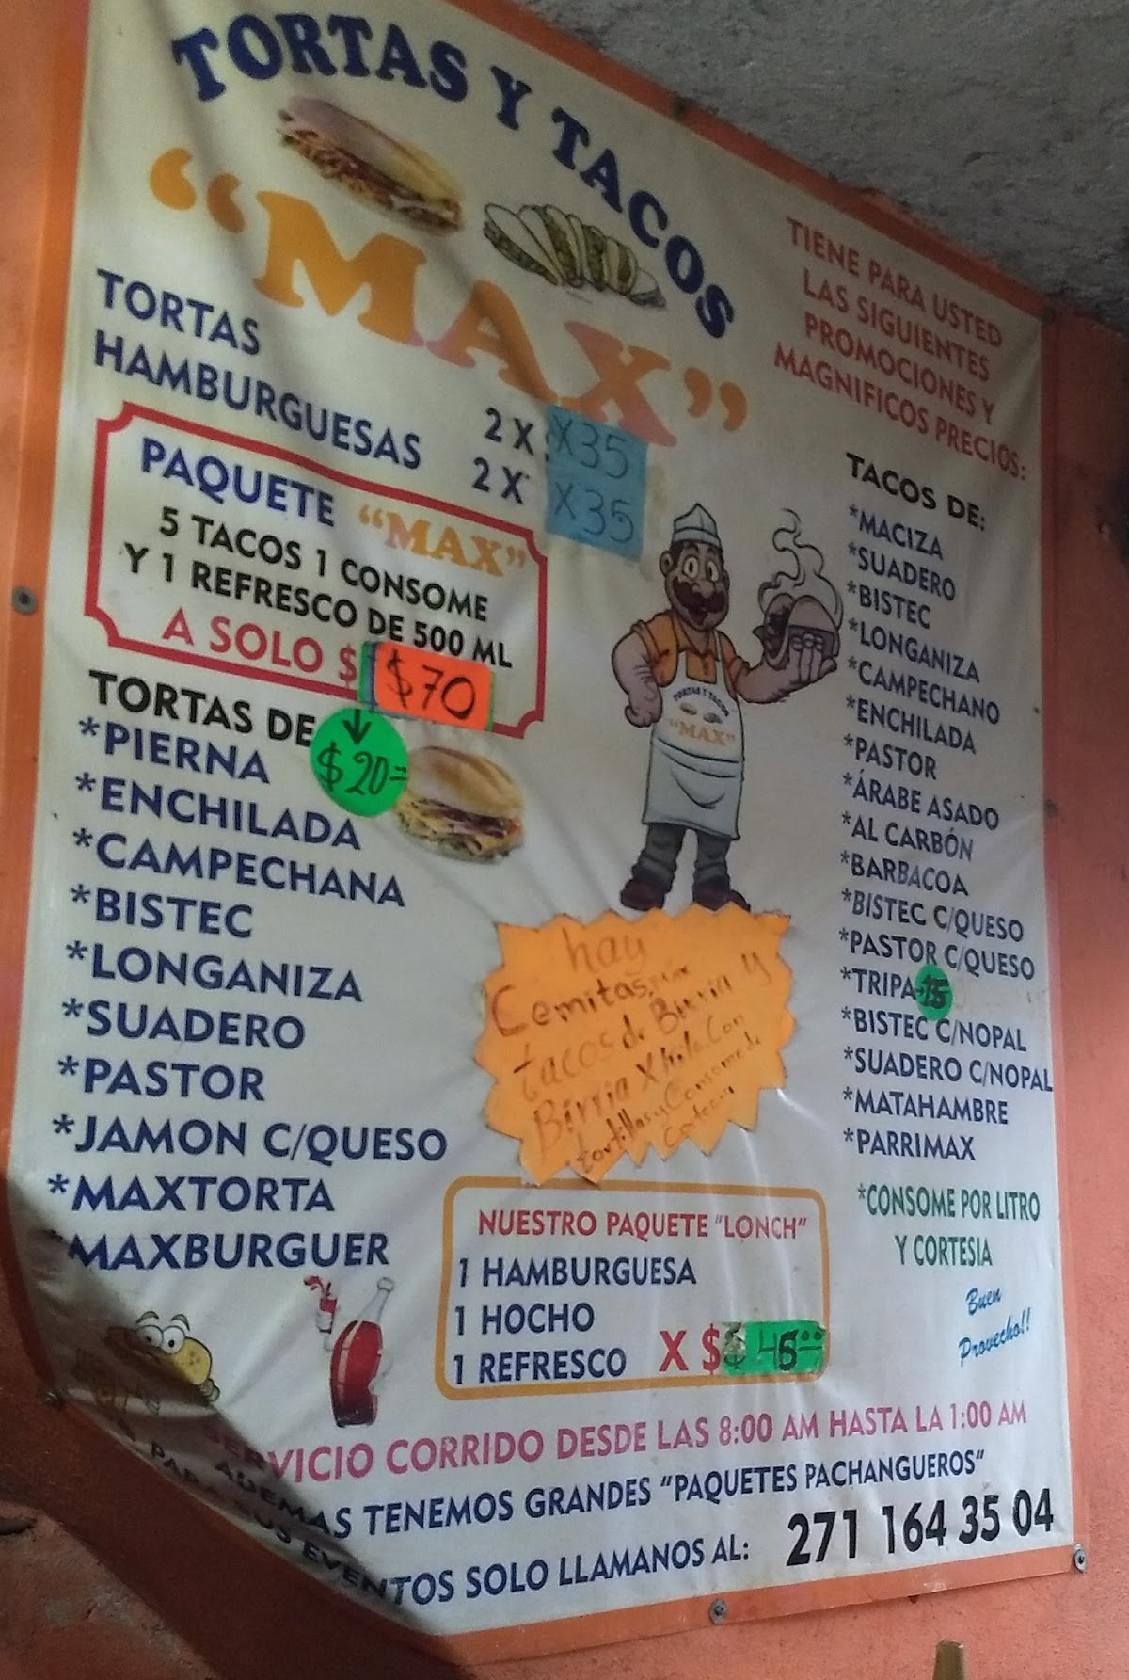 TORTAS Y TACOS
“MAX”
TIENE PARA USTED
LAS SIGUIENTES
PROMOCIONES Y
MAGNIFICOS PRECIOS:
TORTAS 2 X X35
HAMBURGUESAS 2 X X35
PAQUETE “MAX”
5 TACOS 1 CONSOME
Y 1 REFRESCO DE 500 ML
A SOLO $ $70
TORTAS DE
$20=
*PIERNA
*ENCHILADA
*CAMPECHANA
*BISTEC
*LONGANIZA
*SUADERO
*PASTOR
*JAMON C/QUESO
*MAXTORTA
MAXBURGUER
TORTAS Y TACOS
“MAX”
hay
Cemitas
tacos de Birria y
Birria X Kilo Con
tortillas y Consome de
Cortecia
NUESTRO PAQUETE "LONCH"
1 HAMBURGUESA
1 HOCHO
1 REFRESCO X $
TACOS DE:
*MACIZA
*SUADERO
*BISTEC
*LONGANIZA
*CAMPECHANO
*ENCHILADA
*PASTOR
*ÁRABE ASADO
*AL CARBÓN
*BARBACOA
*BISTEC C/QUESO
*PASTOR C/QUESO
*TRIPA-15
*BISTEC C/NOPAL
*SUADERO C/NOPAL
*MATAHAMBRE
*PARRIMAX
*CONSOME POR LITRO
Y CORTESIA
Buen
Provecho!!
SERVICIO CORRIDO DESDE LAS 8:00 AM HASTA LA 1:00 AM
ADEMAS TENEMOS GRANDES “PAQUETES PACHANGUEROS”
PARA SUS EVENTOS SOLO LLAMANOS AL: 271 164 35 04